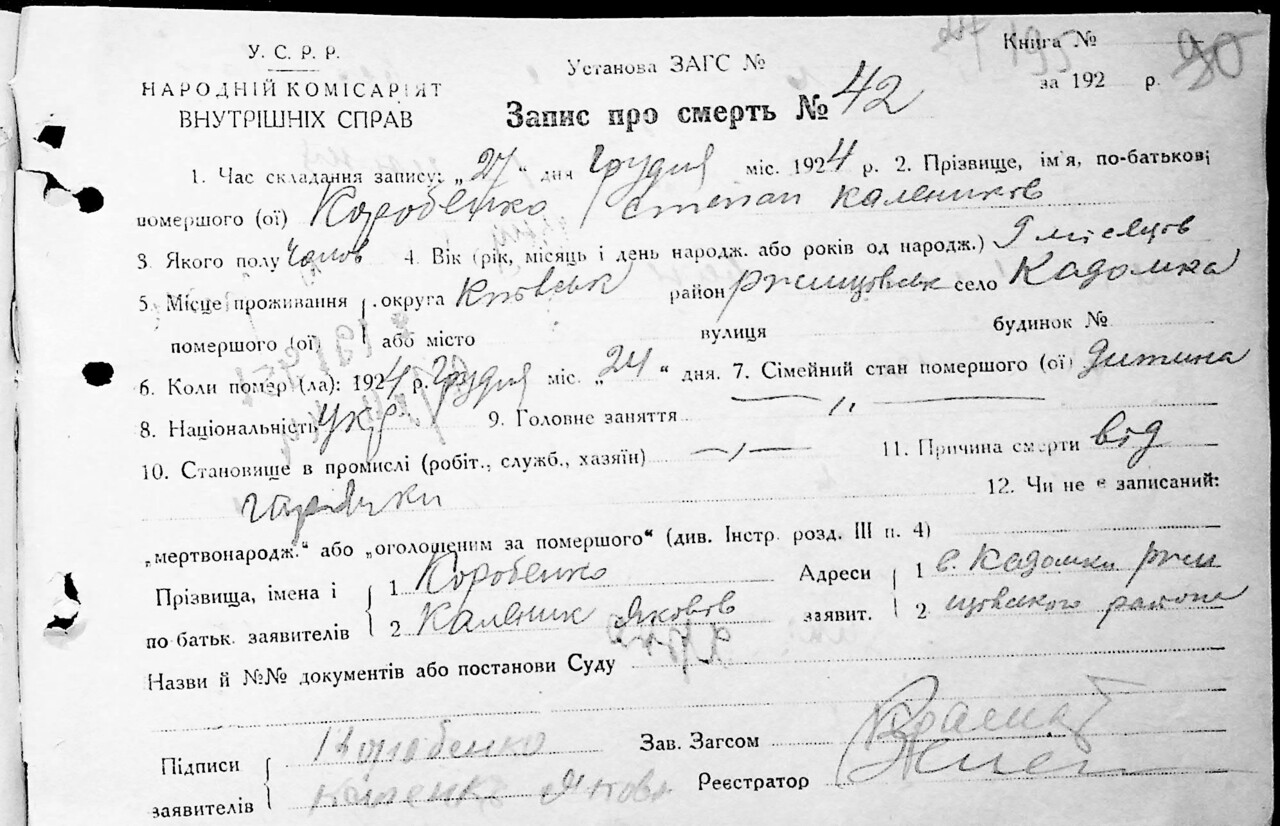 У. С. Р. Р.
НАРОДНІЙ КОМІСАРІЯТ
ВНУТРІШНІХ СПРАВ
Установа ЗАГС №
Книга №
за 192 р. 90
Запис про смерть № 42
1. Час складання запису: „27“ дня Грудня міс. 1924 р. 2. Прізвище, ім'я, по-батькові
помершого (ої) Коробенко Степан Калеников
3. Якого полу Чолов 4. Вік (рік, місяць і день народж. або років од народж.) 9 місяцов
5. Місце проживання округа Київськ район Ржищовськ село Кадомка
помершого (ої) або місто вулиця будинок №
6. Коли помер (ла): 1924 р. Грудня міс. „24“ дня. 7. Сімейний стан помершого (ої) Дитина
8. Національність Укр. 9. Головне заняття — „ —
10. Становище в промислі (робіт., служб., хазяїн) — „ — 11. Причина смерти від
горячки 12. Чи не є записаний:
„мертвонародж.“ або „оголошеним за помершого“ (див. Інстр. розд. III п. 4)
Прізвища, імена і 1 Коробенко Адреси 1 с. Кадомки Ржи
по батьк. заявителів 2 Каленик Яковов заявит. 2 щовського района
Назви й №№ документів або постанови Суду
Підписи Коробенко Зав. Загсом
заявителів Реєстратор